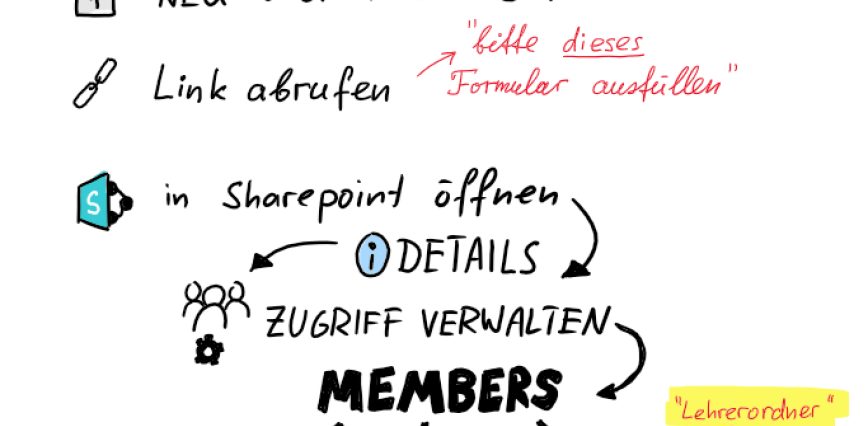 NEU
"bitte dieses
Link abrufen
Formular ausfüllen"
S in Sharepoint öffnen
i DETAILS
ZUGRIFF VERWALTEN
MEMBERS
"Lehrerordner"